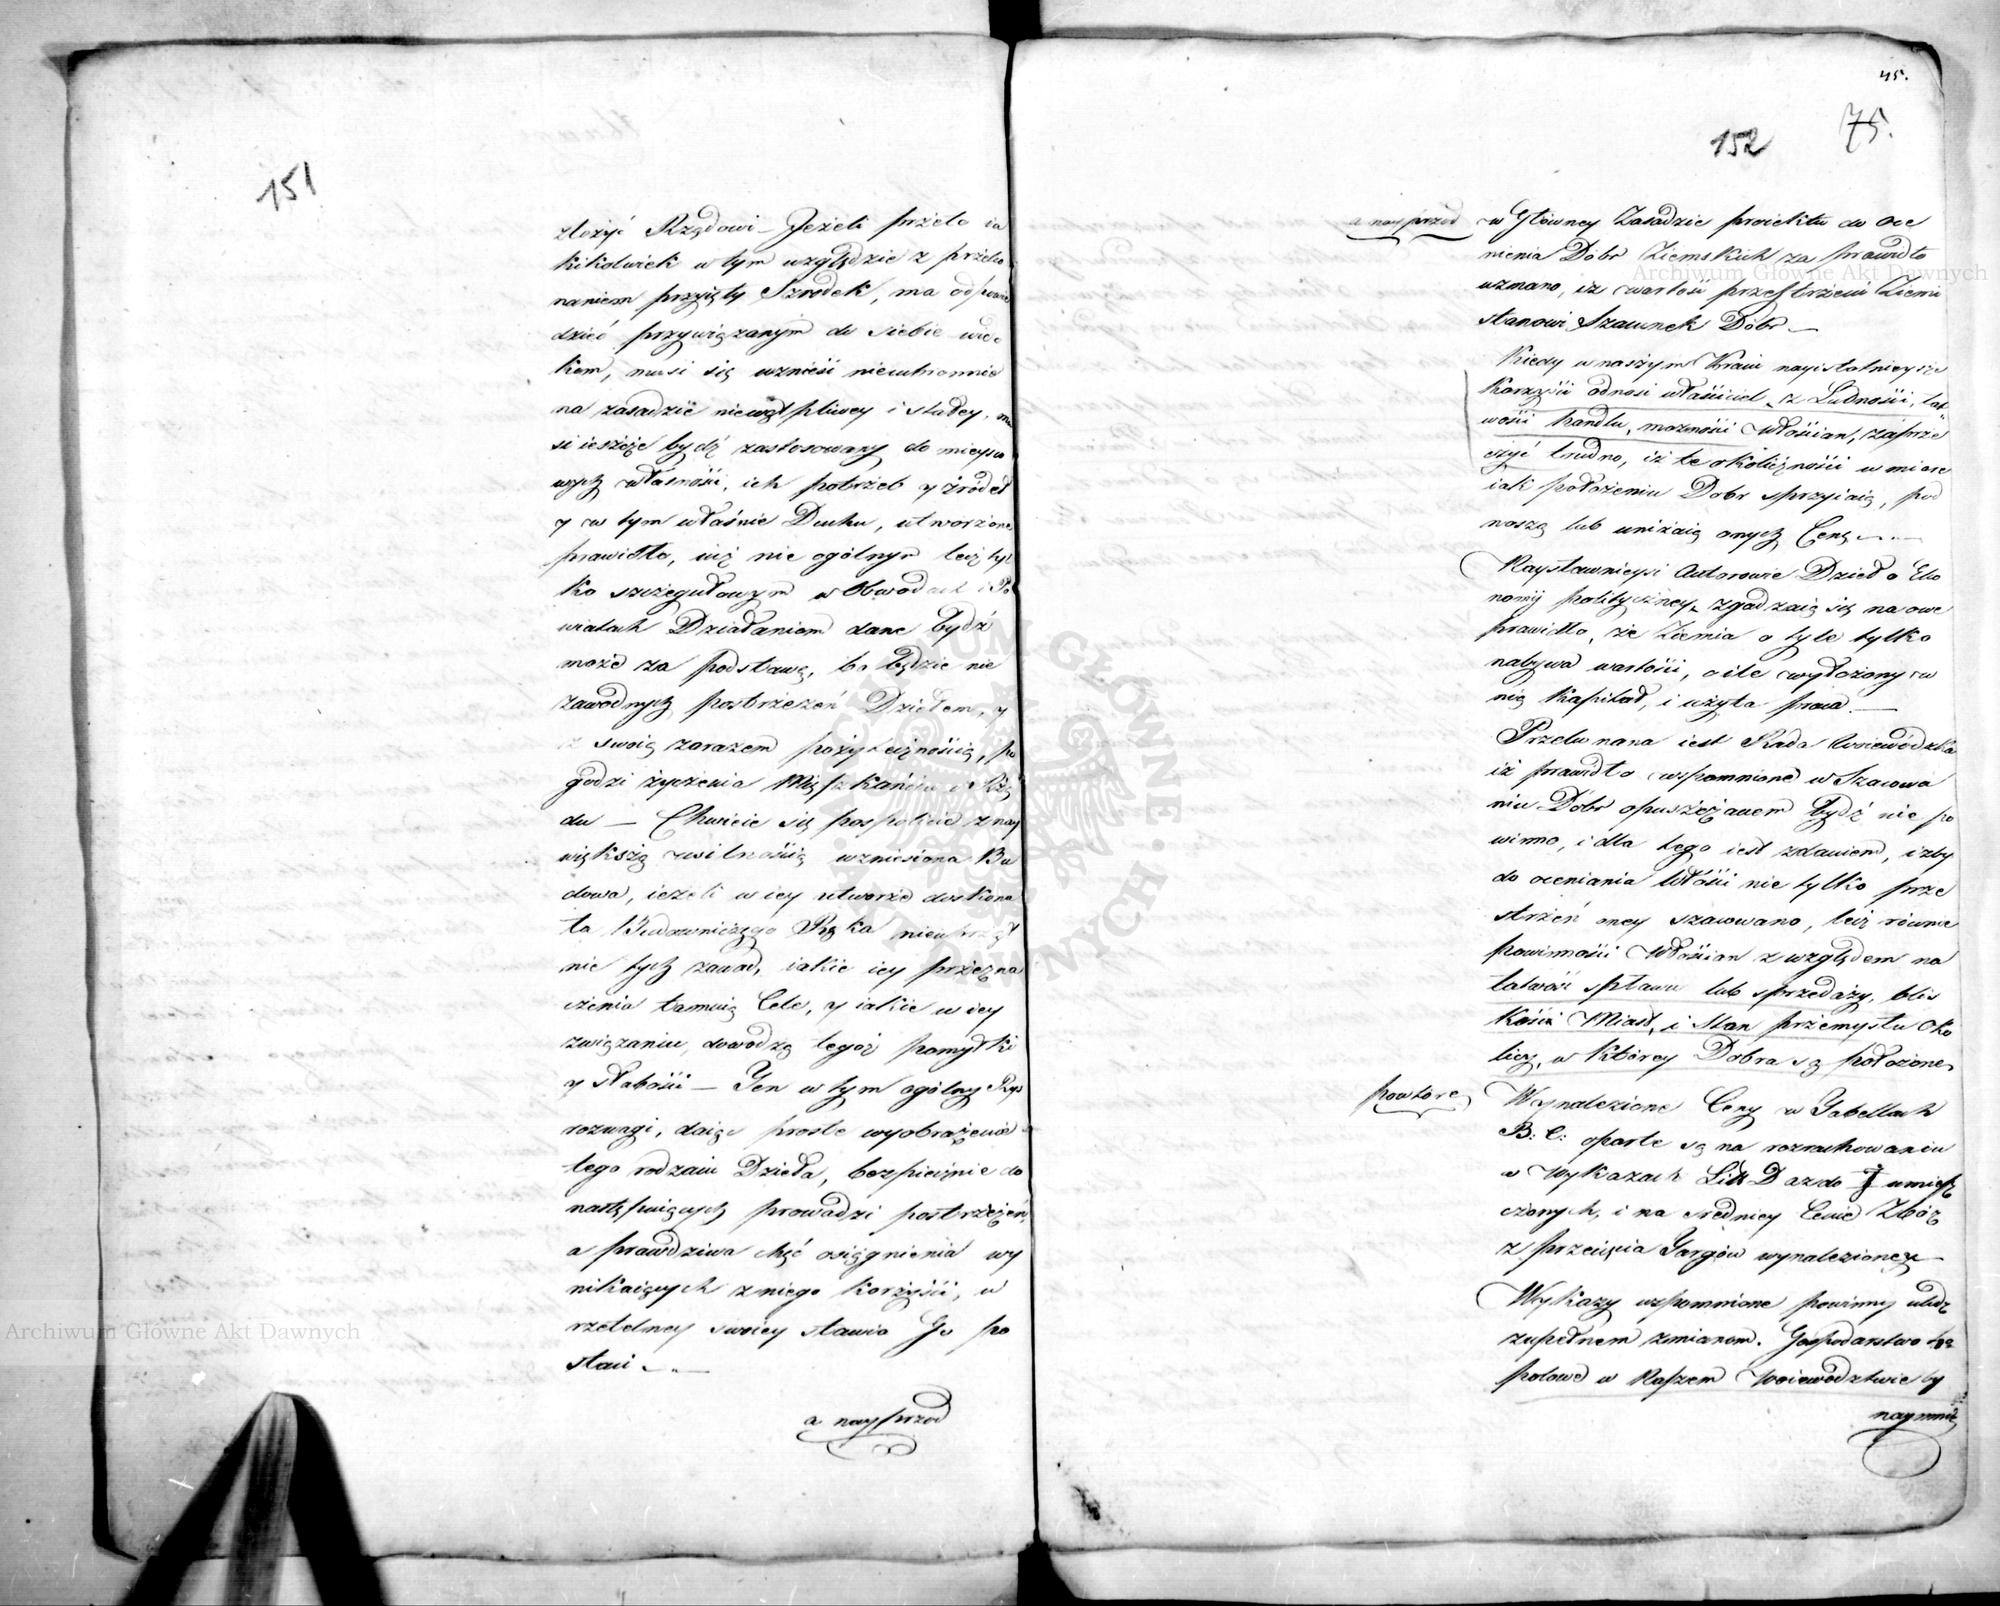 151
złożyć Rządowi – Jeżeli przeto ia
kikolwiek w tym względzie z przeko
naniem przyięty Szrodek, ma odpowie
dzieć przywiązanym do siebie wido
kom, musi się wznieść nieuchronnie
na zasadzie niewątpliwey i stałey, mu
si ieszcze bydź zastosowany do mieysco
wych własności, ich potrzeb y źródeł
y w tym właśnie Duchu, utworzone
prawidło, iuż nie ogólnym lecz tyl
ko szczegułowym w Obwodach i Po
wiatach Działaniom dane bydź
może za podstawę, bo będzie nie
zawodnych postrzeżeń Dziełem, y
z swoią zarazem pożytecznością, po
godzi życzenia Mięszkańców i Rzą
du – Chwieie się pospolicie z nay
większą usilnością wzniesiona Bu
dowa, ieżeli w iey utworze doskona
ła Budowniczego Ręka nieuprząt
nie tych zawad, iakie iey przezna
czenia tamuią Cele, y iakie w iey
związaniu, dowodzą tegoż pomyłki
y słabości – Ten w tym ogólny Rys
rozwagi, daiąc proste wyobrażenie
tego rodzaiu Dzieła, bezpiecznie do
następuiących prowadzi postrzeżeń,
a prawdziwa chęć osiągnienia wy
nikaiących z niego korzyści, w
rzetelney swoiey stawia Go po
staci –
a nayprzod
45.
75.
152
a nayprzod
w Główney Zasadzie proiektu do Oce
nienia Dobr Ziemskich za prawidło
uznano, iż wartość przestrzeni Ziemi
stanowi Szacunek Dóbr –
Kiedy w naszym Kraiu nayistotnieysze
Korzyści odnosi właściciel z Ludności, łat
wości handlu, możności Włościan, zaprze
czyć trudno, iż te okoliczności w miarę
iak położeniu Dobr sprzyiaią, pod
noszą lub uniżaią onych Cenę –
Naysławnieysi Autorowie Dzieł o Eko
nomij polityczney zgadzaią się na owe
prawidło, że Ziemia o tyle tylko
nabywa wartości, o ile wyłożony w
nię Kapitał, i użyta praca –
Przekonana iest Rada Woiewódzka
iż prawidło wspomnione w Szacowa
niu Dóbr opuszczanem bydź nie po
winno, i dla tego iest zdaniem, iżby
do oceniania Włości nie tylko prze
strzeń oney szacowano, lecz równie
powinności Włościan z względem na
łatwość spławu lub sprzedaży, blis
kość Miast, i Stan przemysłu Oko
licy, w którey Dobra są położone
powtore
Wynalezione Ceny w Tabellach
B: C: oparte są na rozrachowaniu
w Wykazach Litt D aż do J umiesz
czonych, i na średniey Cenie Zbóż
z przecięcia Targów wynalezioney –
Wykazy wspomnione powinny uledz
zupełnem zmianom. Gospodarstwo trzy
polowe w Naszem Woiewództwie by
naymniey